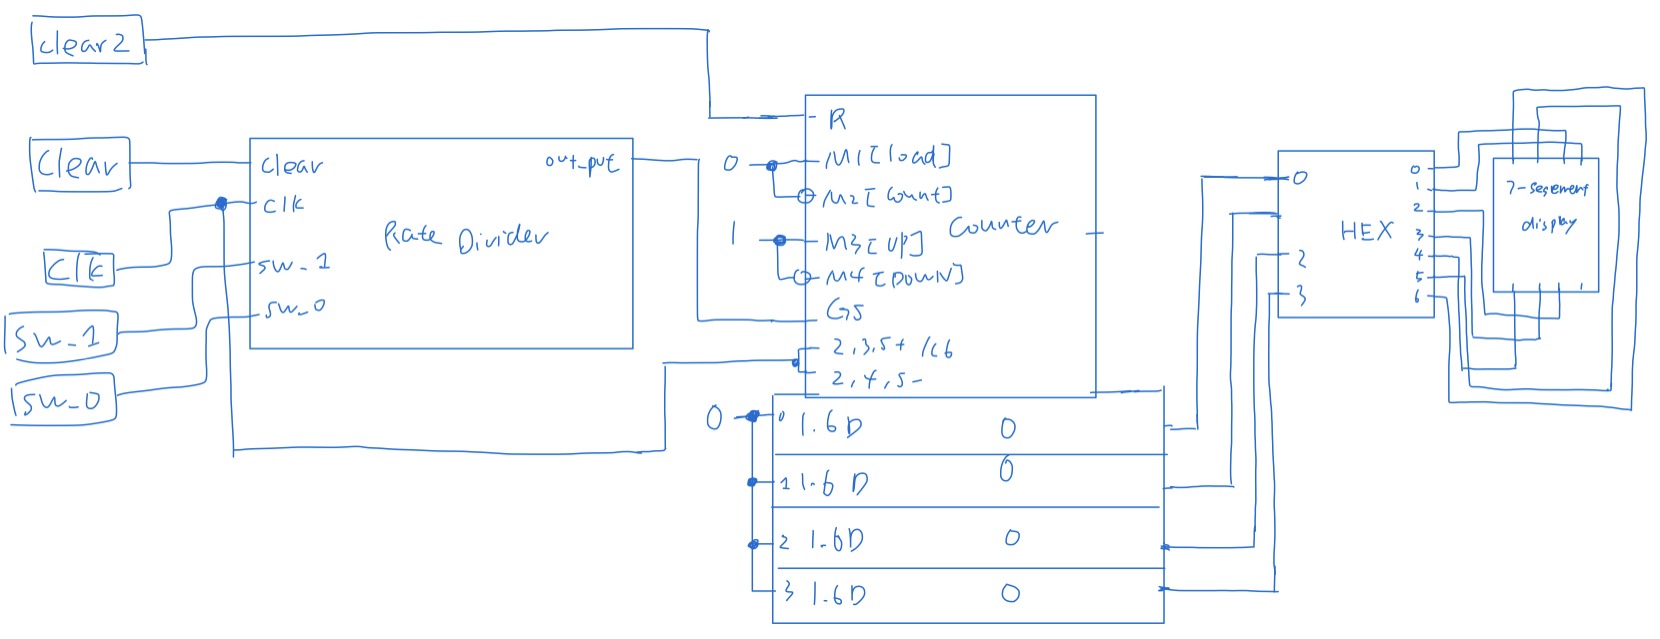 clear2
Clear
Clk
Sw_1
Sw_0
clear
clk
sw_1
sw_0
out_put
Rate Divider
0
1
R
M1[load]
M2[Count]
M3[UP]
M4[DOWN]
G5
2,3,5+ /C6
2,4,5-
Counter
0
0 1.6D 0
1 1.6D 0
2 1.6D 0
3 1.6D 0
0
2
3
HEX
0
1
2
3
4
5
6
7-segement
display